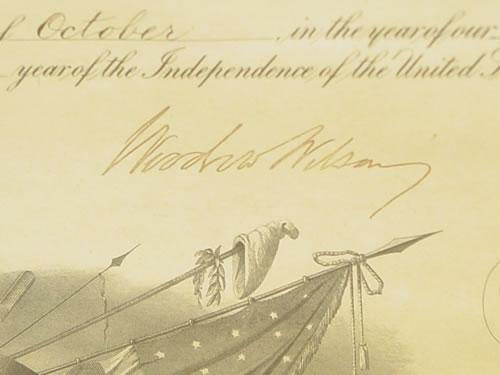 of October in the year of our
year of the Independence of the United
Woodrow Wilson